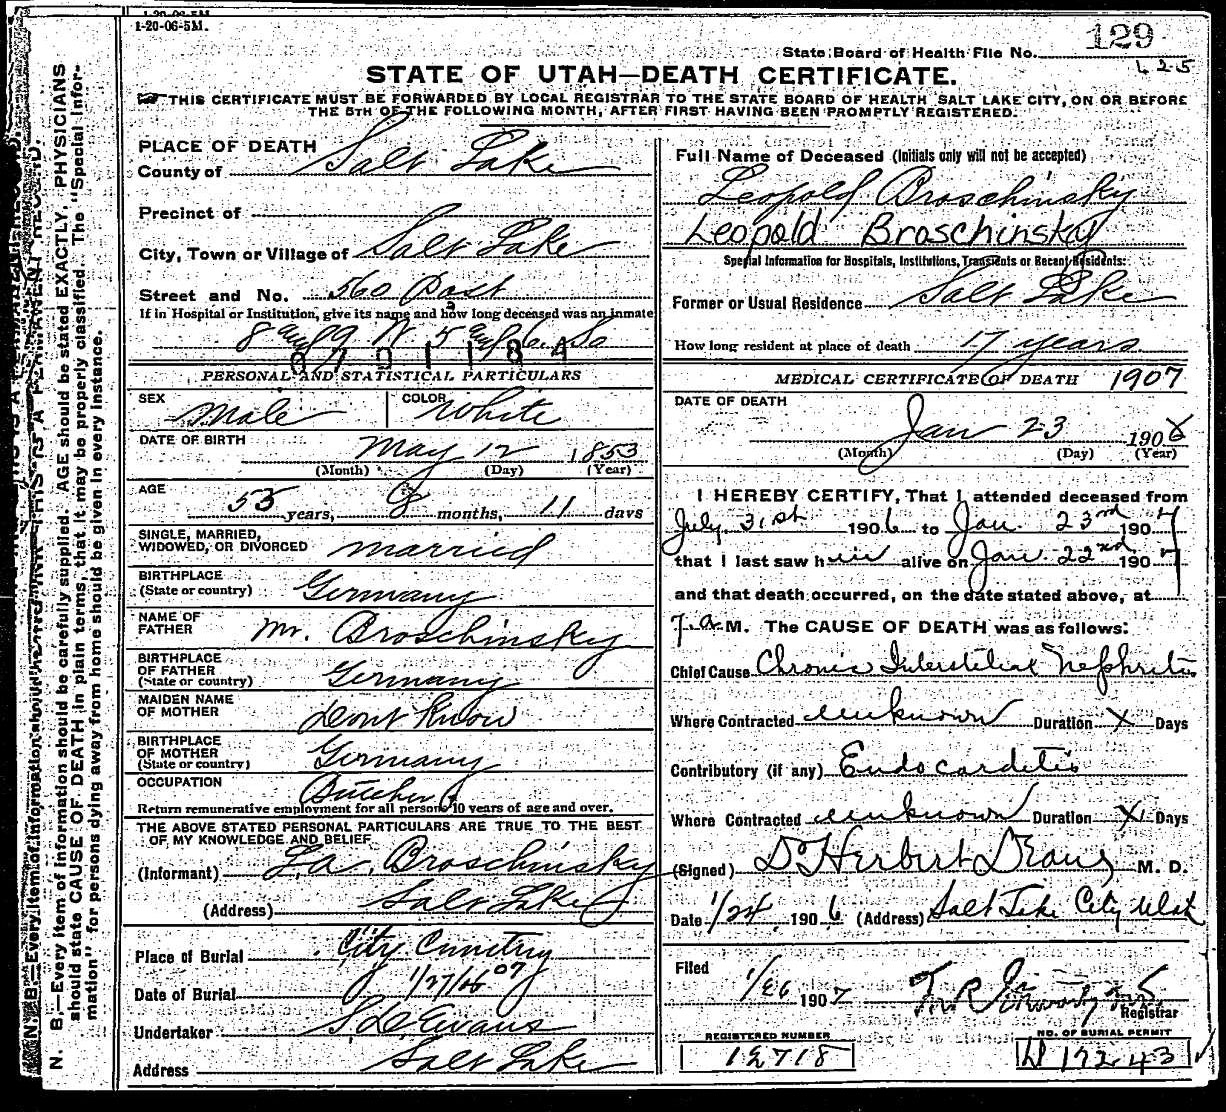 1-20-06-5M.
129
State Board of Health File No.
425
STATE OF UTAH—DEATH CERTIFICATE.
THIS CERTIFICATE MUST BE FORWARDED BY LOCAL REGISTRAR TO THE STATE BOARD OF HEALTH, SALT LAKE CITY, ON OR BEFORE
THE 5TH OF THE FOLLOWING MONTH, AFTER FIRST HAVING BEEN PROMPTLY REGISTERED.
N. B.—Every item of information should be carefully supplied. AGE should be stated EXACTLY. PHYSICIANS
should state CAUSE OF DEATH in plain terms, that it may be properly classified. The "Special Infor-
mation" for persons dying away from home should be given in every instance.
PLACE OF DEATH
County of Salt Lake
Precinct of
City, Town or Village of Salt Lake
Street and No. 560
If in Hospital or Institution, give its name and how long deceased was an inmate
PERSONAL AND STATISTICAL PARTICULARS
SEX Male COLOR White
DATE OF BIRTH May 12 1853
(Month) (Day) (Year)
AGE 53 years, 8 months, 11 days
SINGLE, MARRIED,
WIDOWED, OR DIVORCED married
BIRTHPLACE
(State or country) Germany
NAME OF
FATHER Mr. Broschinsky
BIRTHPLACE
OF FATHER
(State or country) Germany
MAIDEN NAME
OF MOTHER Dont Know
BIRTHPLACE
OF MOTHER
(State or country) Germany
OCCUPATION Butcher
Return remunerative employment for all persons 10 years of age and over.
THE ABOVE STATED PERSONAL PARTICULARS ARE TRUE TO THE BEST
OF MY KNOWLEDGE AND BELIEF
(Informant) Broschinsky
(Address) Salt Lake
Place of Burial City Cemetery
Date of Burial 1/27/06 07
Undertaker S D Evans
Address Salt Lake
Full Name of Deceased (Initials only will not be accepted)
Leopold Broschinsky
Leopold Broschinsky
Special Information for Hospitals, Institutions, Transients or Recent Residents:
Former or Usual Residence Salt Lake
How long resident at place of death 17 years
MEDICAL CERTIFICATE OF DEATH 1907
DATE OF DEATH
Jan 23 1906
(Month) (Day) (Year)
I HEREBY CERTIFY, That I attended deceased from
July 31st 1906 to Jan. 23rd 1907
that I last saw him alive on Jan. 22nd 1907
and that death occurred, on the date stated above, at
7 a M. The CAUSE OF DEATH was as follows:
Chief Cause Chronic Interstitial Nephritis
Where Contracted unknown Duration X Days
Contributory (if any) Endocardetis
Where Contracted unknown Duration X Days
(Signed) M. D.
Date 1/24 1906 (Address) Salt Lake City Utah
Filed 1/26 1907
Registrar
REGISTERED NUMBER
12718
NO. OF BURIAL PERMIT
17243